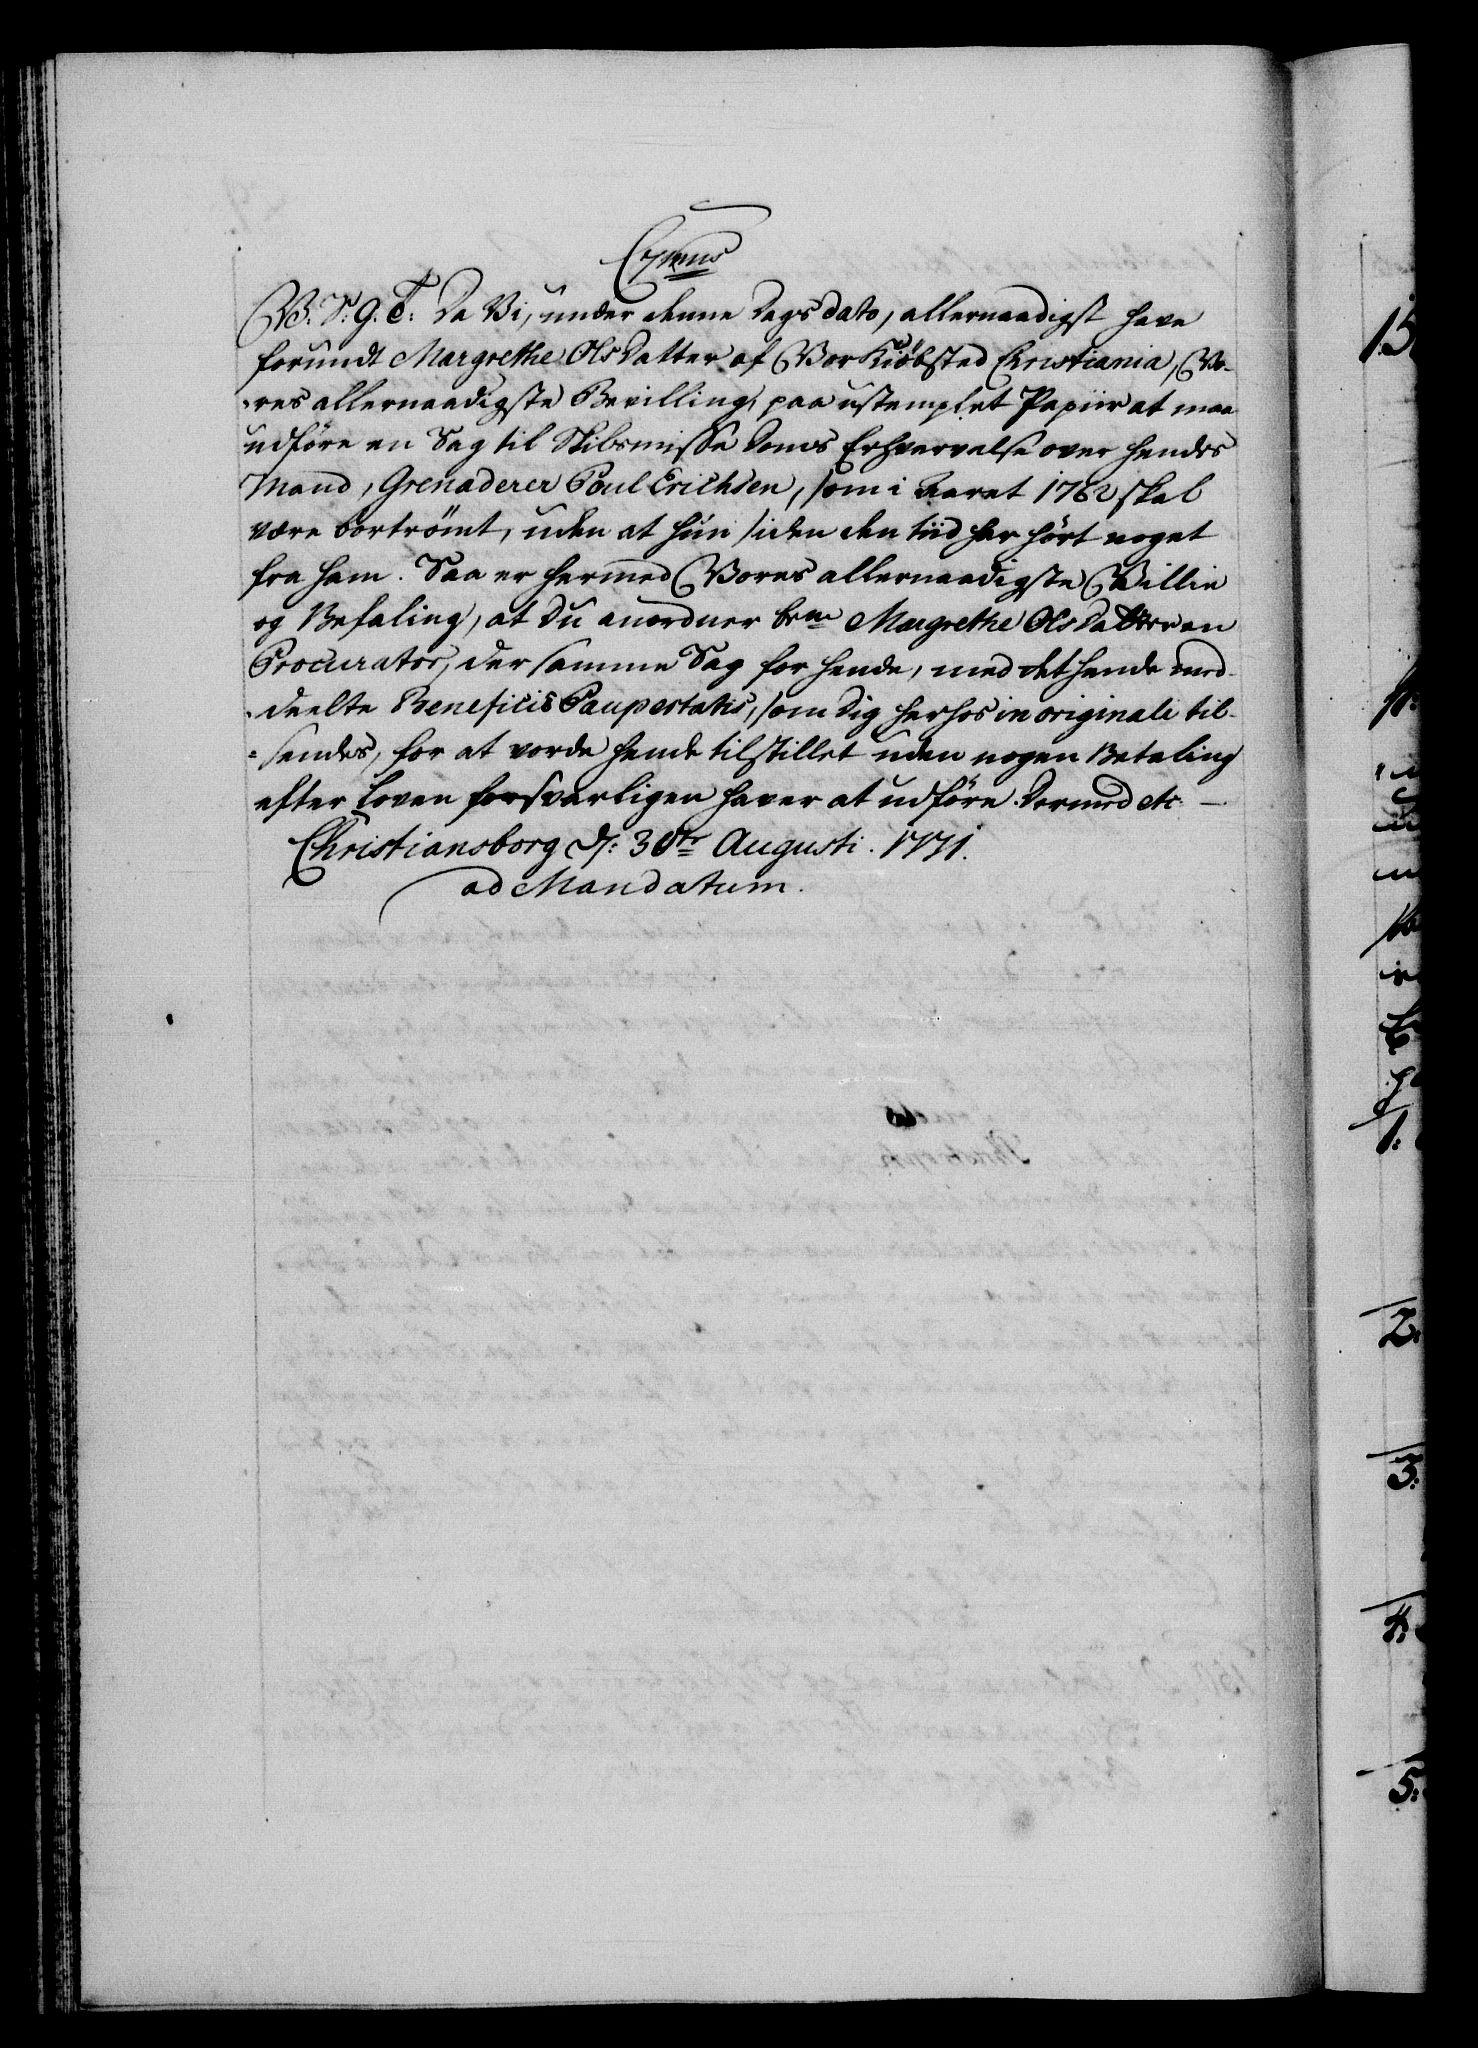 V: S: G: T: Da Vi, under denne Dags dato, allernaadigst have
forundt Margrethe Olsdatter af Vor Kiöbsted Christiania, Vo-
-res allernaadigste Bevilling, paa ustemplet Papiir at maa
udföre en Sag til Skilsmisse Doms Erhvervelse over hendes
Mand, Grenaderer Poul Erichsen, som i Aaret 1762 skal
være bortrömt, uden at hun siden den tiid har hört noget
fra ham. Saa er hermed Vores allernaadigste Villie
og Befaling, at Du anordner bem Margrethe Olsdatter en
Procurator, der samme Sag for hende, med det hende med-
-deelte Beneficio Paupertatis, som Dig herhos in originali til-
-sendes, for at vorde hende tilstillet uden nogen Betaling
efter Loven forsvarligen haver at udföre. Dermed etc
Christiansborg d: 30te Augusti. 1771.
ad Mandatum.
15
1:
2.
3:
4:
5: